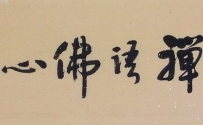 禪語佛心